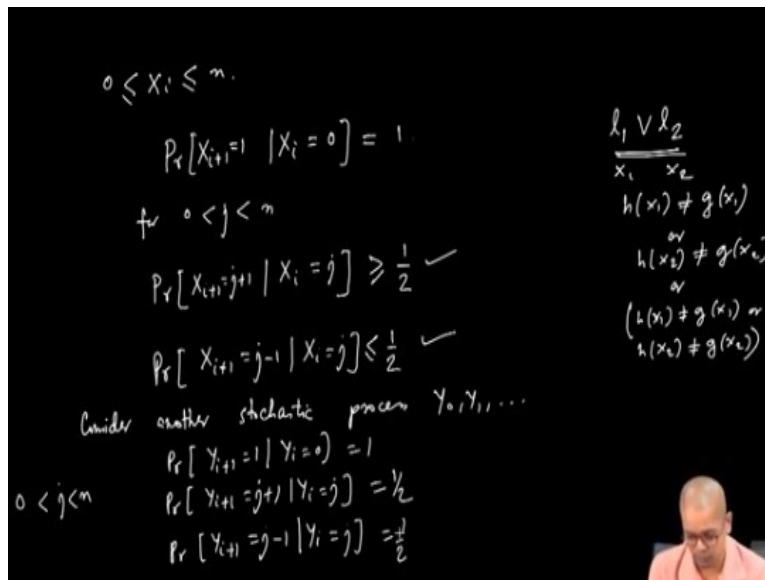 0 ≤ Xi ≤ n.
Pr[Xi+1=1 | Xi=0] = 1.
for 0 < j < n
Pr[Xi+1=j+1 | Xi=j] ≥ 1/2 ✓
Pr[Xi+1=j-1 | Xi=j] ≤ 1/2 ✓
Consider another stochastic process Y0, Y1, ...
Pr[Yi+1=1 | Yi=0) = 1
0 < j < n
Pr[Yi+1=j+1 | Yi=j] = 1/2
Pr[Yi+1=j-1 | Yi=j] = 1/2
l1 ∨ l2
x1 x2
h(x1) ≠ g(x1)
or
h(x2) ≠ g(x2)
or
(h(x1) ≠ g(x1) or
h(x2) ≠ g(x2))